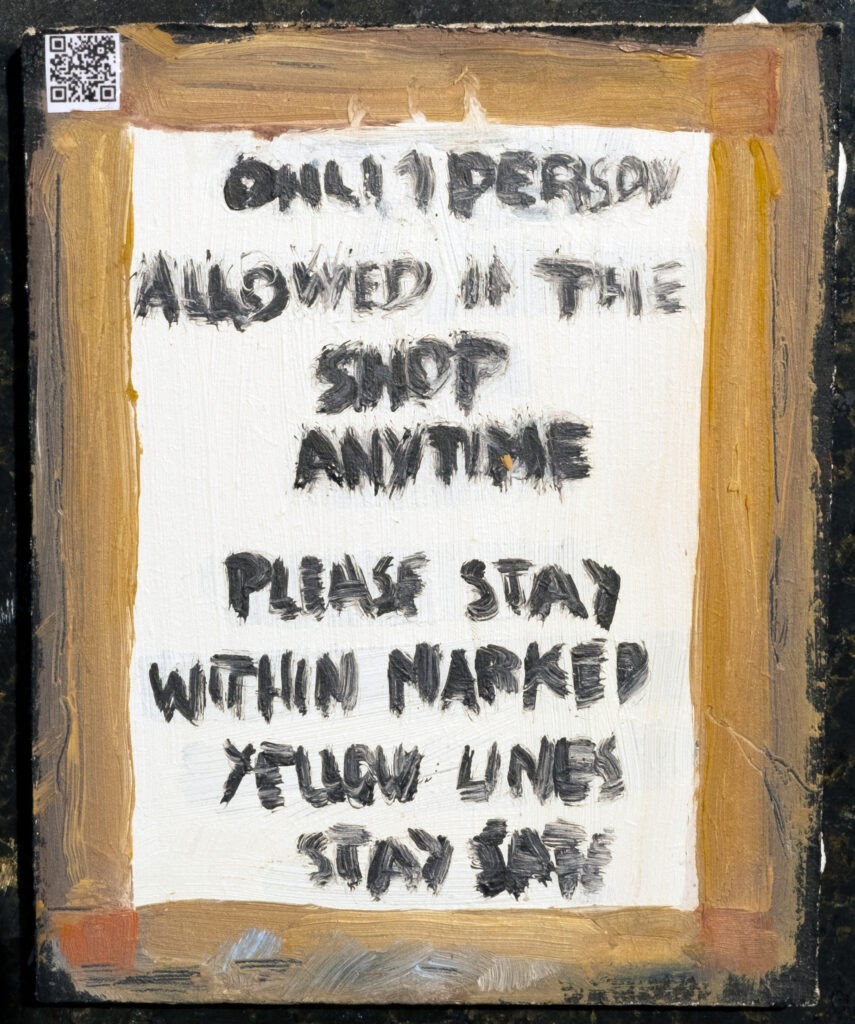 ONLI 1 PERSON
ALLOWED IN THE
SHOP
ANYTIME
PLEASE STAY
WITHIN MARKED
YELLOW LINES
STAY SAFE